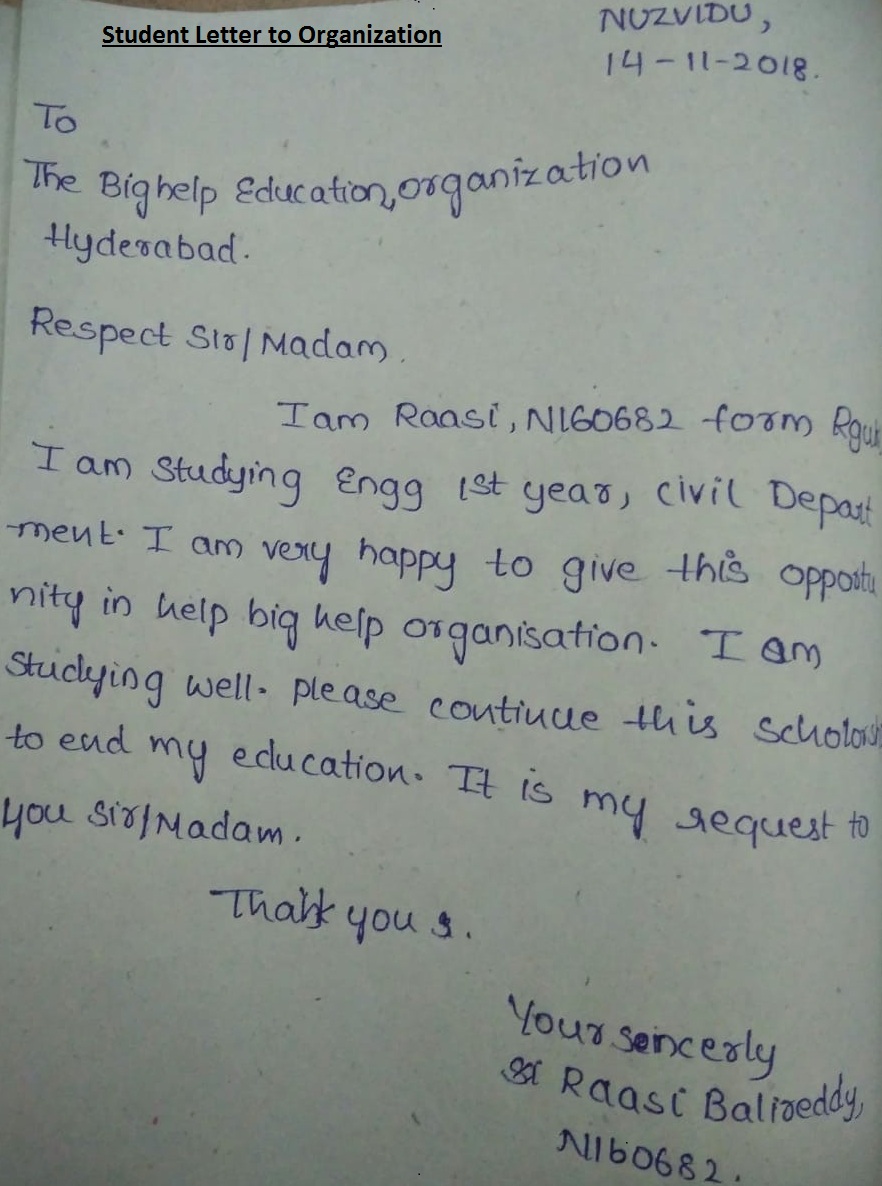 Student Letter to Organization
NUZVIDU,
14-11-2018.
To
The Big help Education, organization
Hyderabad.
Respect Sir/Madam.
I am Raasi, N160682 form
I am Studying Engg 1st year, civil Depart
-ment. I am very happy to give this opportu
nity in help big help organisation. I am
Studying well. please continue this
to end my education. It is my request to
you Sir/Madam.
Thank you
Your sencerly
Raasi Balireddy,
N160682.